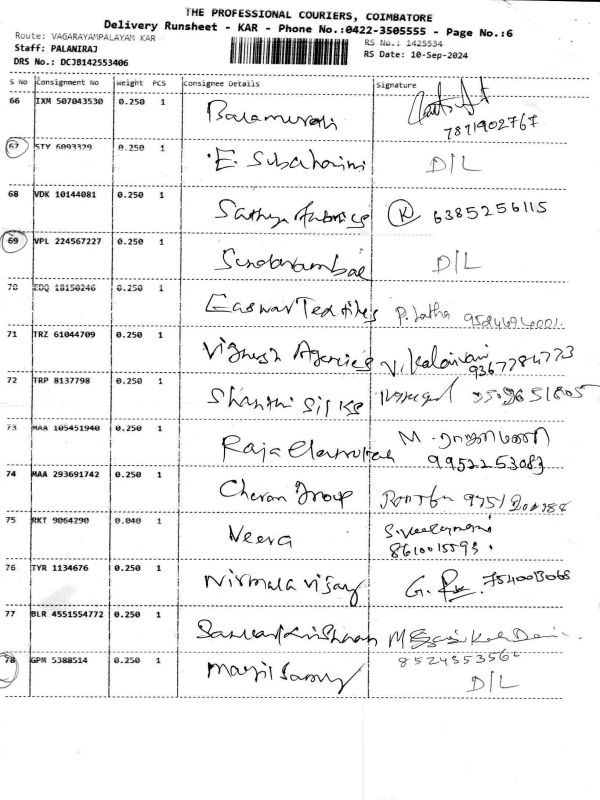 THE PROFESSIONAL COURIERS, COIMBATORE
Delivery Runsheet - KAR - Phone No.:0422-3505555 - Page No.:6
Route: VAGARAYAMPALAYAM KAR
RS No.: 1425534
Staff: PALANIRAJ
RS Date: 10-Sep-2024
DRS No.: DCJB142553406
S No Consignment No weight PCS Consignee Details Signature
66 IXM 507043530 0.250 1 Balamurali
7871902767
67 STY 6093329 0.250 1 E. Subaharini D/L
68 VDK 10144081 0.250 1 Sathya fabrics K 6385256115
69 VPL 224567227 0.250 1 Sundarambal D/L
70 EDQ 18150246 0.250 1 Easwar Textiles P. Latha
71 TRZ 61044709 0.250 1 Vignesh Agencies V. Kalaivani
9367784773
72 TRP 8137798 0.250 1 Shanthi Silks
73 MAA 105451940 0.250 1 Raja M. ராஜாமணி
9952253083
74 MAA 293691742 0.250 1 Cheran Group
75 RKT 9064290 0.040 1 Neera
8610015593
76 TYR 1134676 0.250 1 Nirmala Vijay G. 7540013068
77 BLR 4551554772 0.250 1
78 GPM 5388514 0.250 1 Mayilsamy D/L